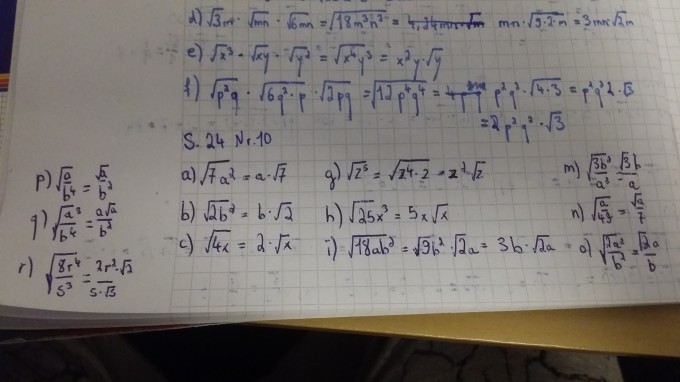 d) √3m · √mn · √6mn = √18m³n² = mn · √9·2·m = 3mn√2m
e) √x³ · √xy · √y² = √x⁴y³ = x²y·√y
f) √p²q · √6q²·p · √2pq = √12p⁴q⁴ = p²q²·√4·3 = p²q²2·√3
= 2p²q²·√3
S. 24 Nr. 10
a) √7a² = a·√7
b) √2b² = b·√2
c) √4x = 2·√x
g) √z⁵ = √z⁴·z = z²·√z
h) √25x³ = 5x√x
i) √18ab² = √9b²·√2a = 3b·√2a
m) √3b²/a³ = √3b/a
n) √a/49 = √a/7
o) √2a²/b² = √2a/b
p) √a/b⁴ = √a/b²
q) √a³/b⁴ = a√a/b²
r) √8r⁴/s³ = 2r²·√2/s·√s